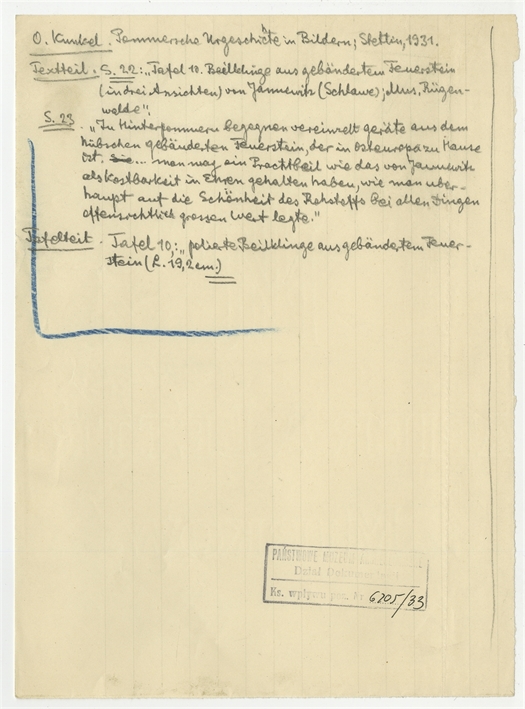 O. Kunkel. Pommersche Urgeschichte in Bildern; Stettin, 1931.
Textteil. S. 22: „Tafel 10. Beilklinge aus gebändertem Feuerstein
(in drei Ansichten) von Jannewitz (Schlawe); Mus. Rügen-
walde".
S. 23. „In Hinterpommern begegnen vereinzelt geräte aus dem
hübschen gebänderten Feuerstein, der in Osteuropa zu Hause
ist. ... man mag ein Prachtbeil wie das von Jannewitz
als Kostbarkeit in Ehren gehalten haben, wie man über-
haupt auf die Schönheit des Rohstoffs bei allen Dingen
offensichtlich grossen Wert legte."
Tafelteil. Tafel 10,: „polierte Beilklinge aus gebändertem Feuer-
stein (L. 19,2 cm.)
PAŃSTWOWE MUZEUM
Dział
Ks. wpływu 6705/33